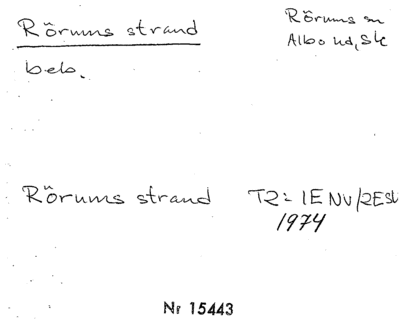 Rörums strand
Rörums sn
Albo hd, Sk
beb.
Rörums strand T2= 1E NV/2E SV
1974
Nr 15443